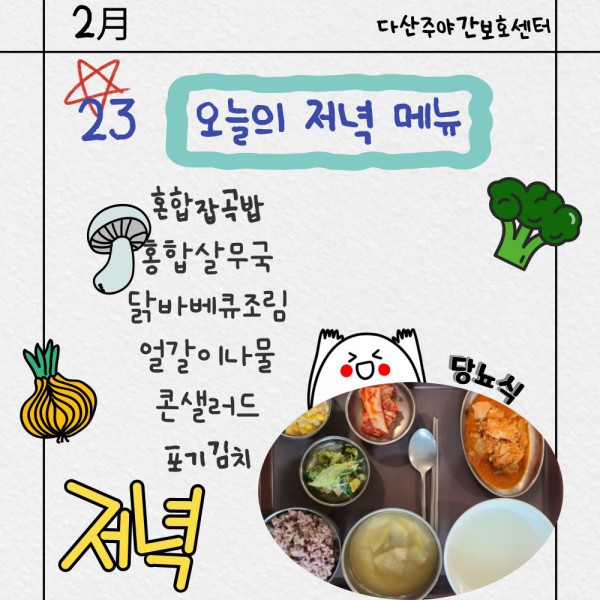 2月
다산주야간보호센터
23
오늘의 저녁 메뉴
혼합잡곡밥
홍합살무국
닭바베큐조림
얼갈이나물
콘샐러드
포기김치
당뇨식
저녁